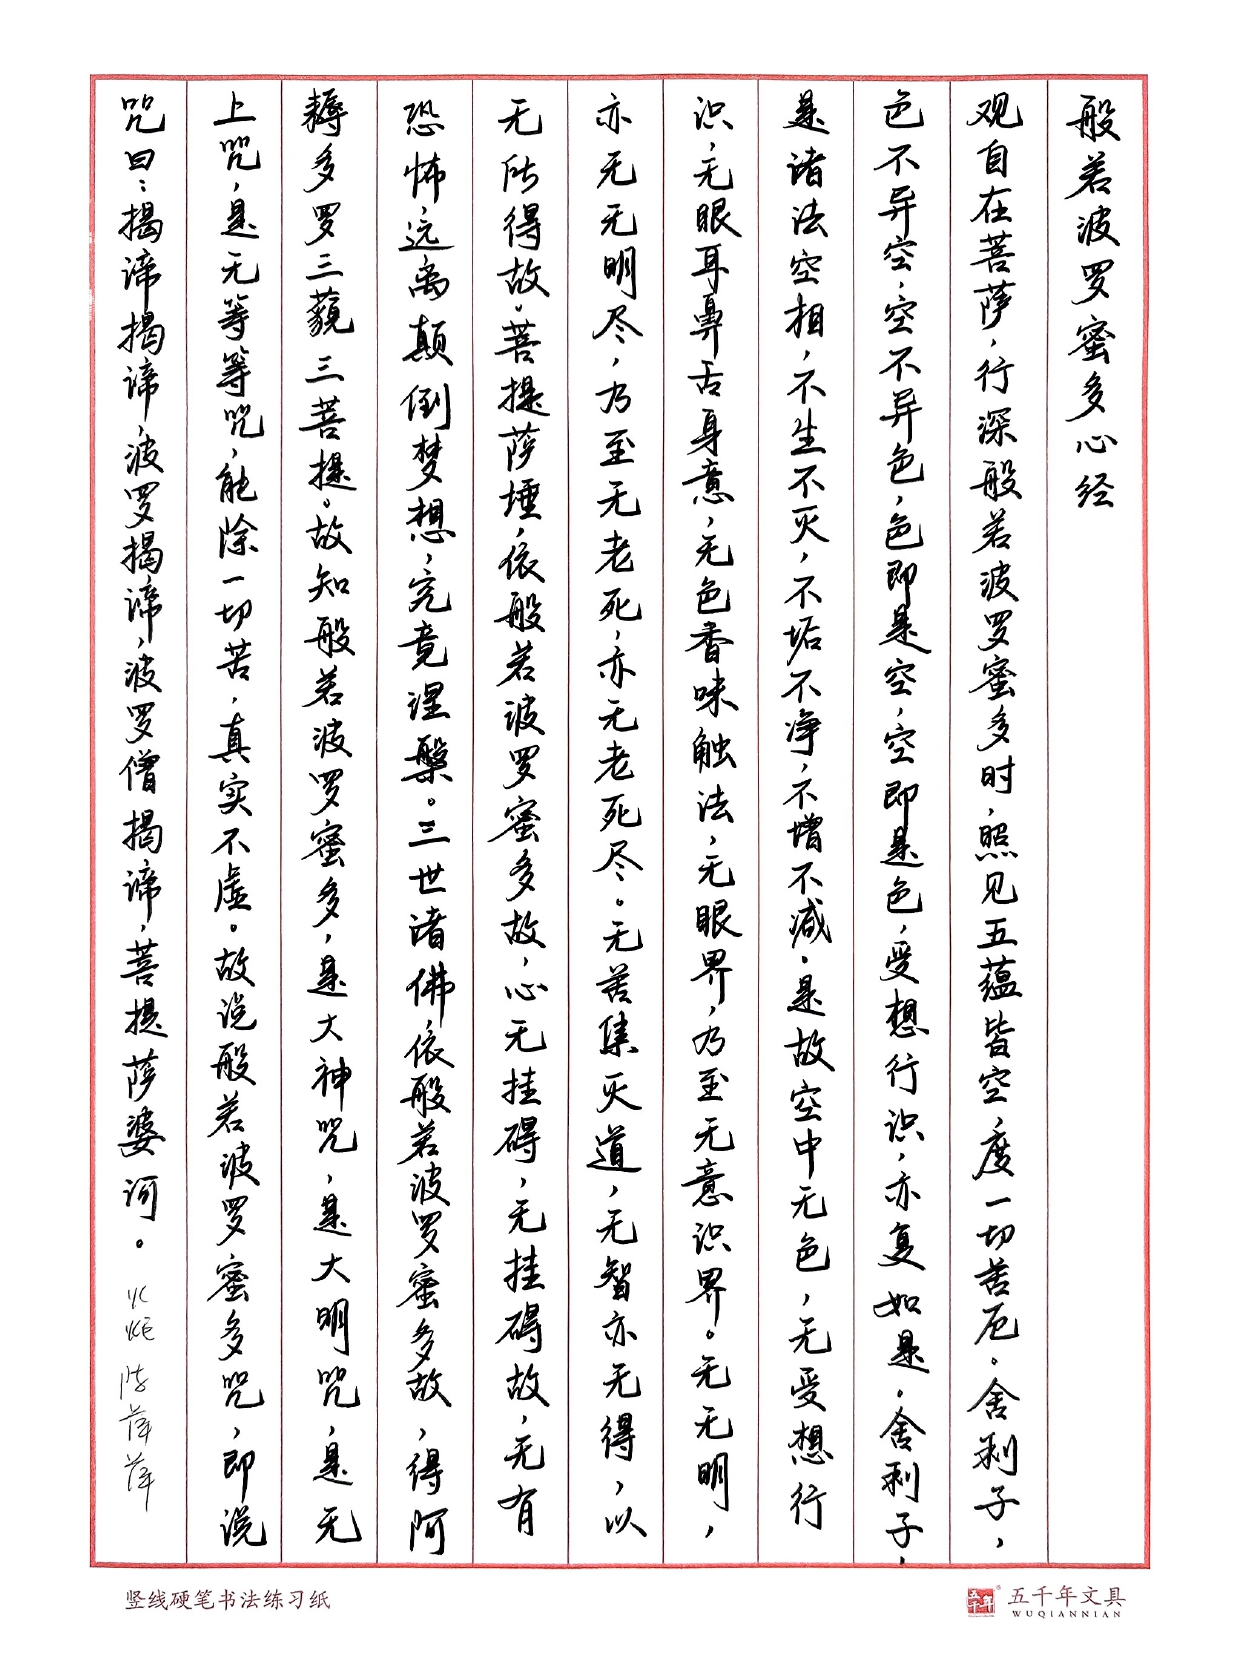 般若波罗蜜多心经
观自在菩萨，行深般若波罗蜜多时，照见五蕴皆空，度一切苦厄。舍利子，
色不异空，空不异色，色即是空，空即是色，受想行识，亦复如是。舍利子，
是诸法空相，不生不灭，不垢不净，不增不减。是故空中无色，无受想行
识，无眼耳鼻舌身意，无色香味触法，无眼界，乃至无意识界。无无明，
亦无无明尽，乃至无老死，亦无老死尽。无苦集灭道，无智亦无得，以
无所得故。菩提萨埵，依般若波罗蜜多故，心无挂碍，无挂碍故，无有
恐怖，远离颠倒梦想，究竟涅槃。三世诸佛，依般若波罗蜜多故，得阿
耨多罗三藐三菩提。故知般若波罗蜜多，是大神咒，是大明咒，是无
上咒，是无等等咒，能除一切苦，真实不虚。故说般若波罗蜜多咒，即说
咒曰：揭谛揭谛，波罗揭谛，波罗僧揭谛，菩提萨婆诃。 陈萍萍
竖线硬笔书法练习纸
五千年
五千年文具
WUQIANNIAN